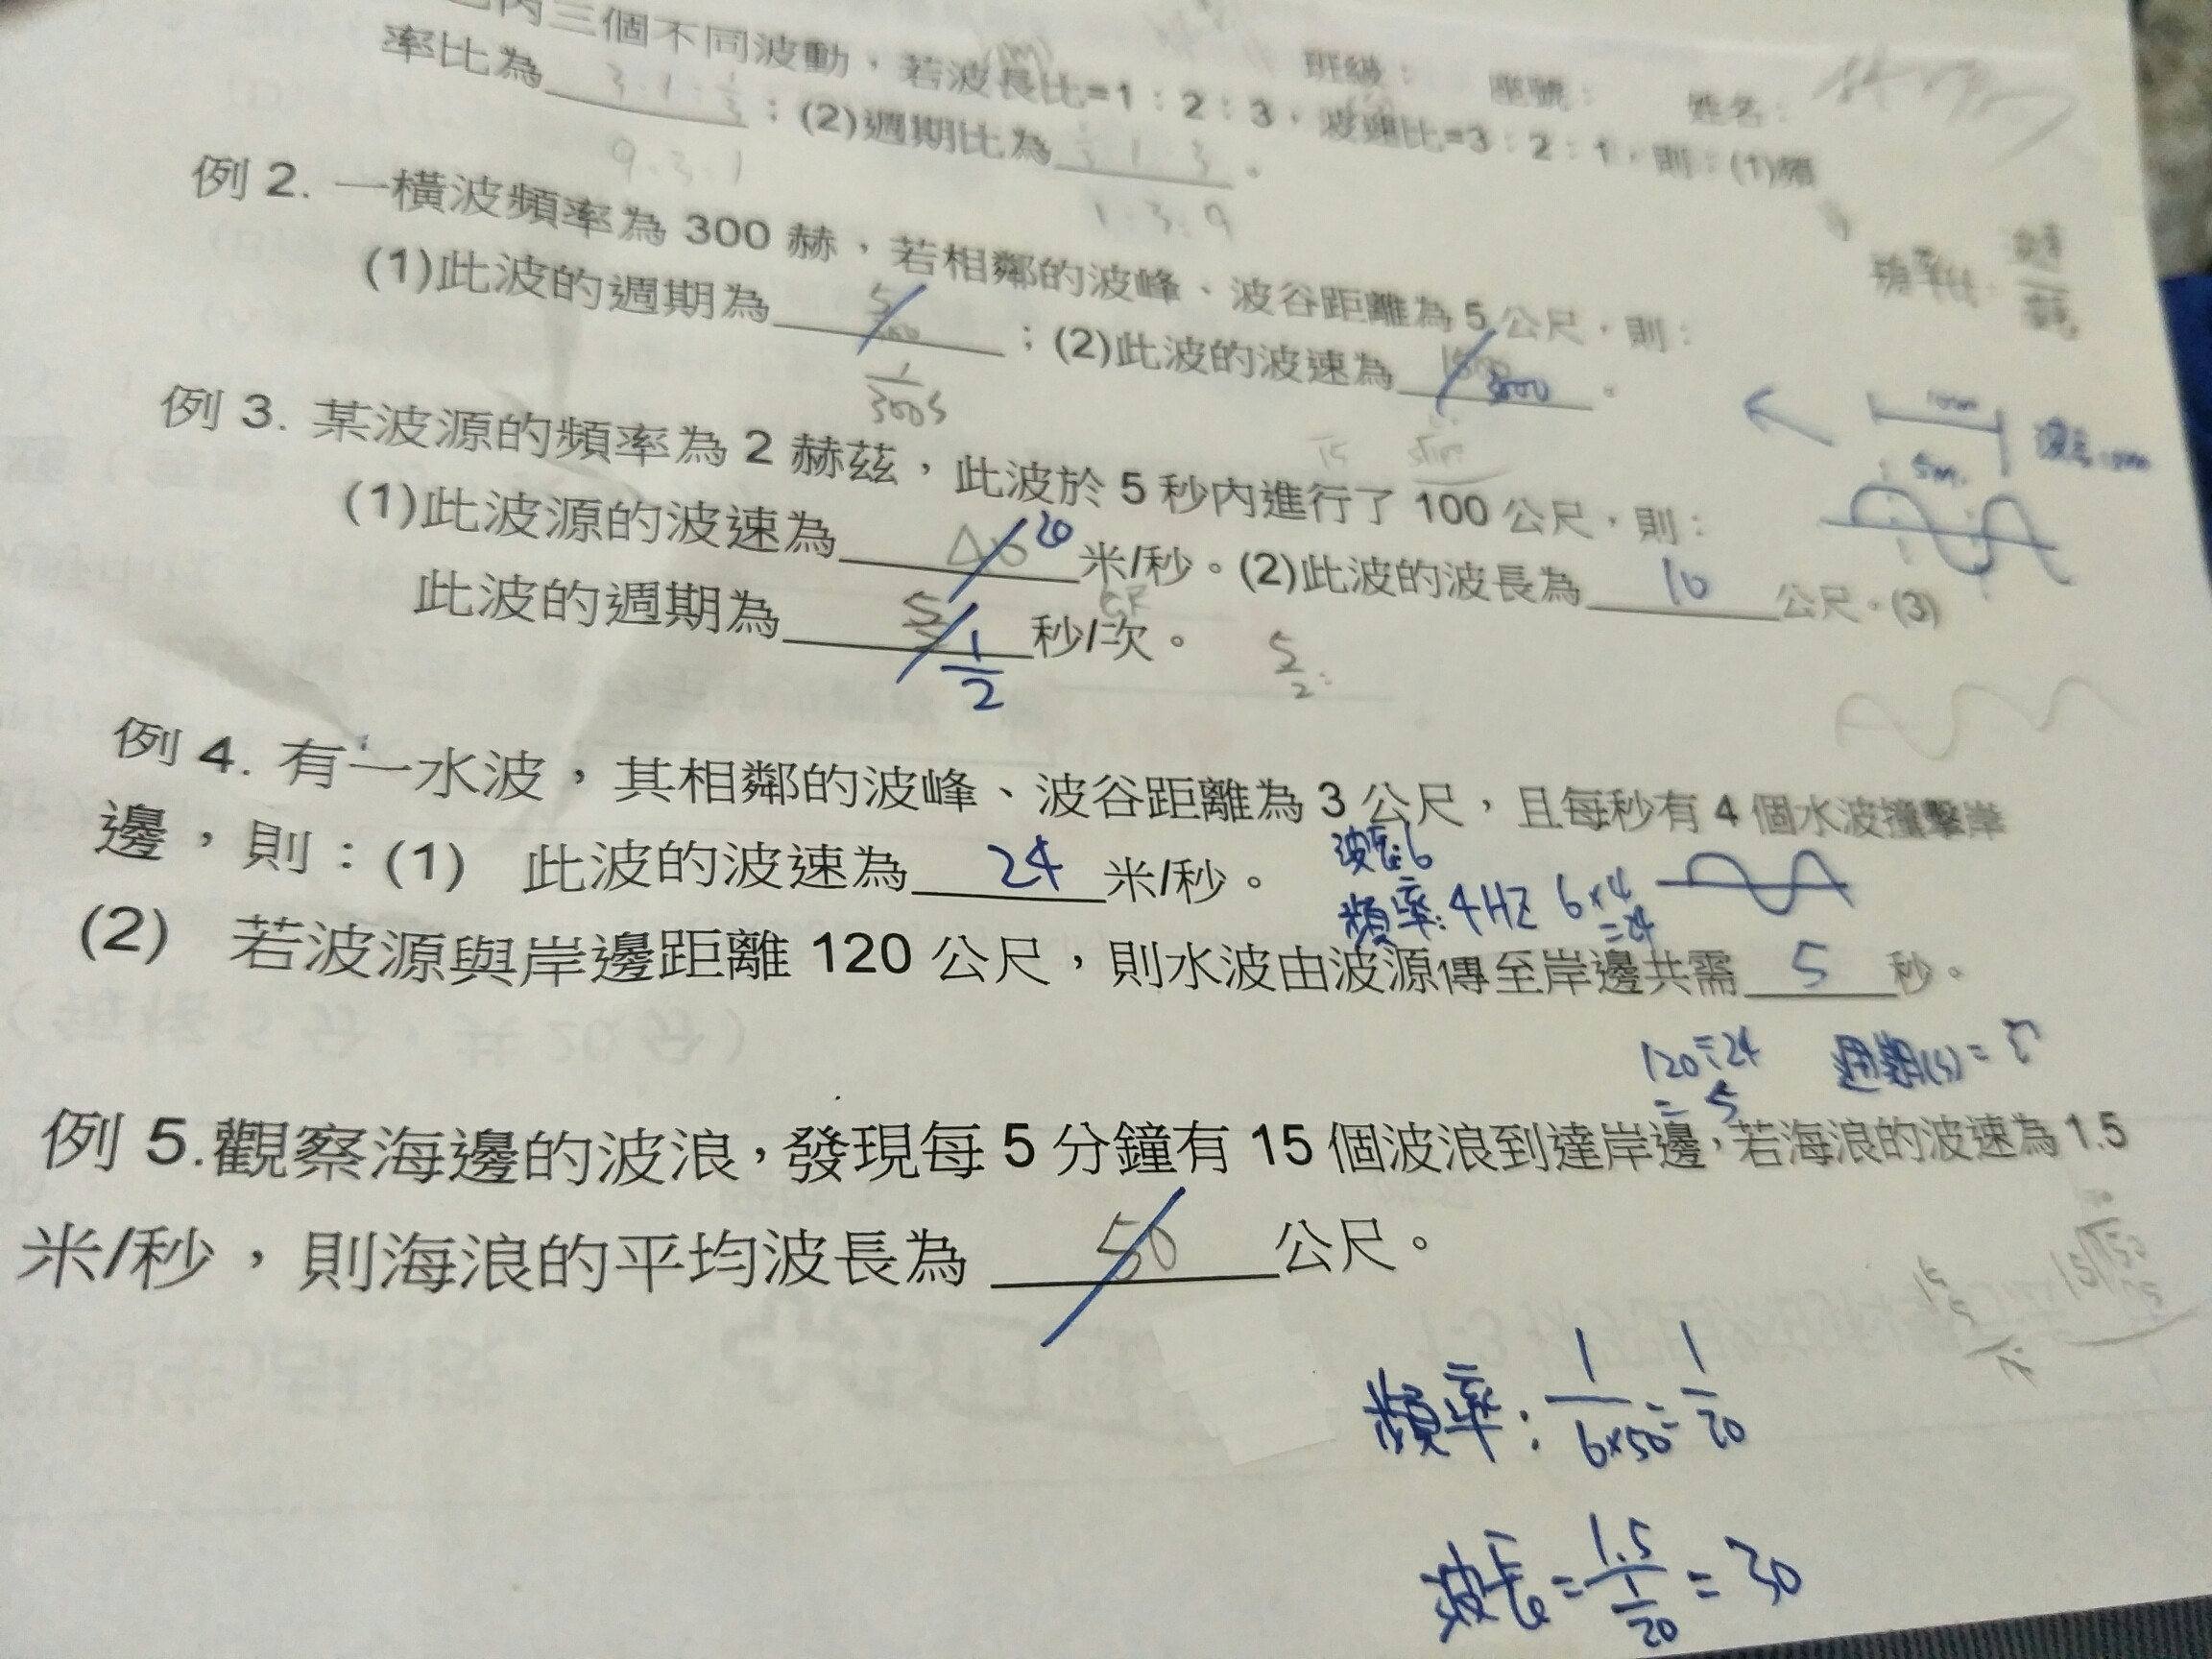 丙三個不同波動，若波長比=1：2：3，波速比=3：2：1，則：(1)頻
班級： 座號： 姓名：
率比為 3:1:1/3 ；(2)週期比為 1/3 1 3 。
9:3:1
1:3:9
例 2. 一橫波頻率為 300 赫，若相鄰的波峰、波谷距離為 5 公尺，則：
頻率比：
(1)此波的週期為 ；(2)此波的波速為 1500 3000 。
1/300 s
10m
5m
例 3. 某波源的頻率為 2 赫茲，此波於 5 秒內進行了 100 公尺，則：
(1)此波源的波速為 20 米/秒。(2)此波的波長為 10 公尺。(3)
此波的週期為 5/2 1/2 秒/次。
5/2
例 4. 有一水波，其相鄰的波峰、波谷距離為 3 公尺，且每秒有 4 個水波撞擊岸
邊，則：(1) 此波的波速為 24 米/秒。
波長:6
頻率:4HZ 6×4
=24
(2) 若波源與岸邊距離 120 公尺，則水波由波源傳至岸邊共需 5 秒。
120÷24
= 5
週期(s)=
例 5.觀察海邊的波浪，發現每 5 分鐘有 15 個波浪到達岸邊，若海浪的波速為 1.5
米/秒，則海浪的平均波長為 50 公尺。
頻率: 1/6×50 = 1/20
波長 = 1.5/(1/20) = 30